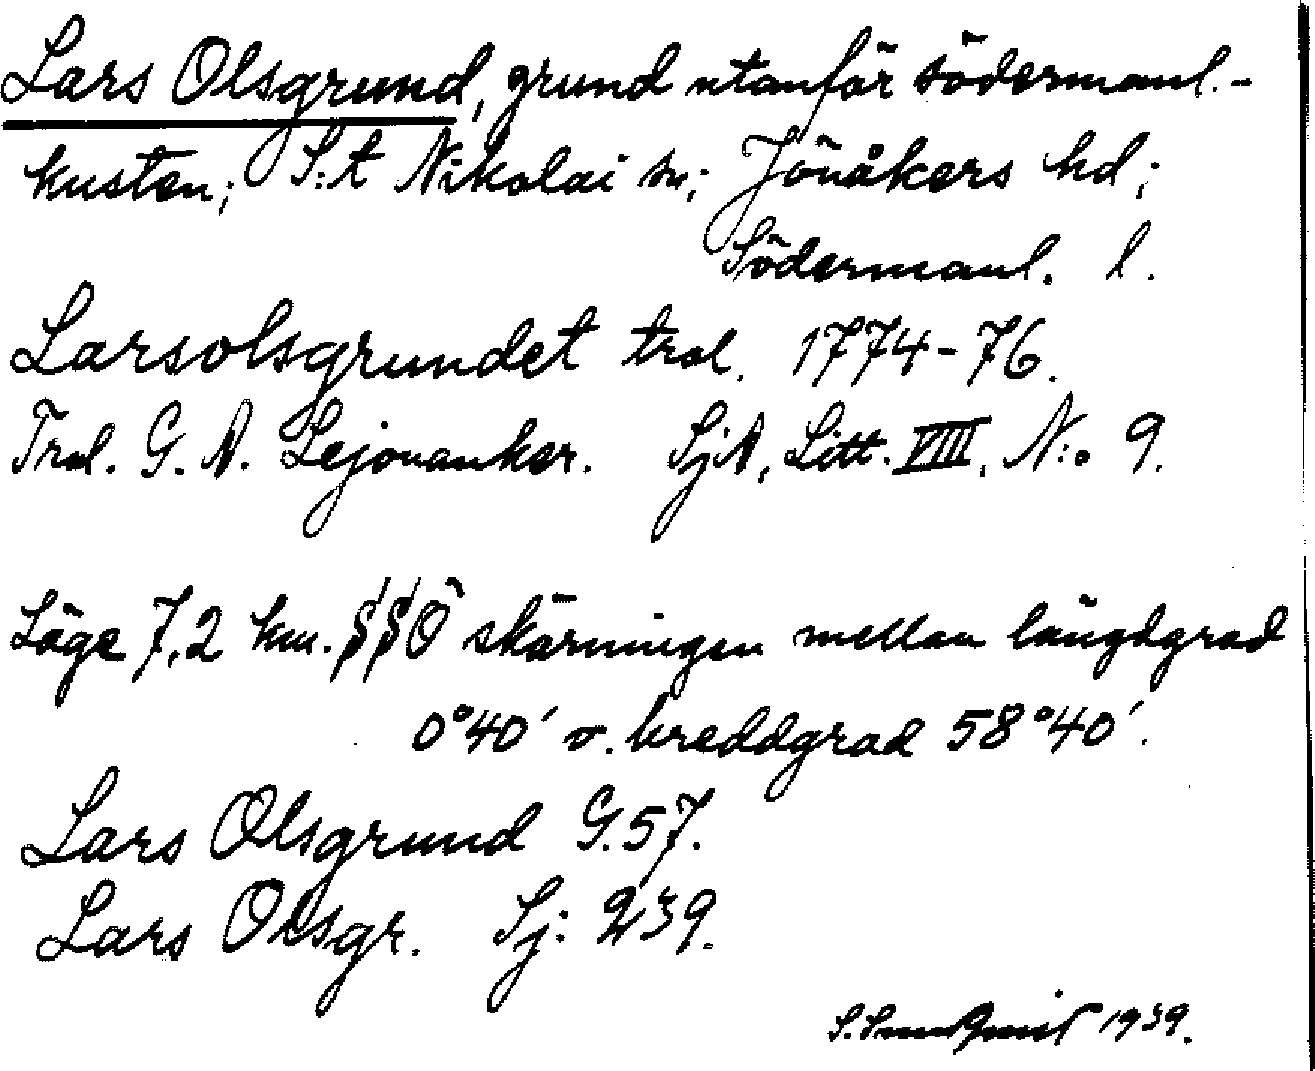 Lars Olsgrund, grund utanför södermanl.-
kusten; S:t Nikolai sn; Jönåkers hd;
Södermanl. l.
Larsolsgrundet trol. 1774-76.
Trol. G. A. Lejonanker. SjA, Litt. VIII, N:o 9.
Läge 7,2 km. SSÖ skärningen mellan längdgrad
0°40' o. breddgrad 58°40'.
Lars Olsgrund G.57.
Lars Olsgr. Sj: 239.
S. Sundqvist 1939.